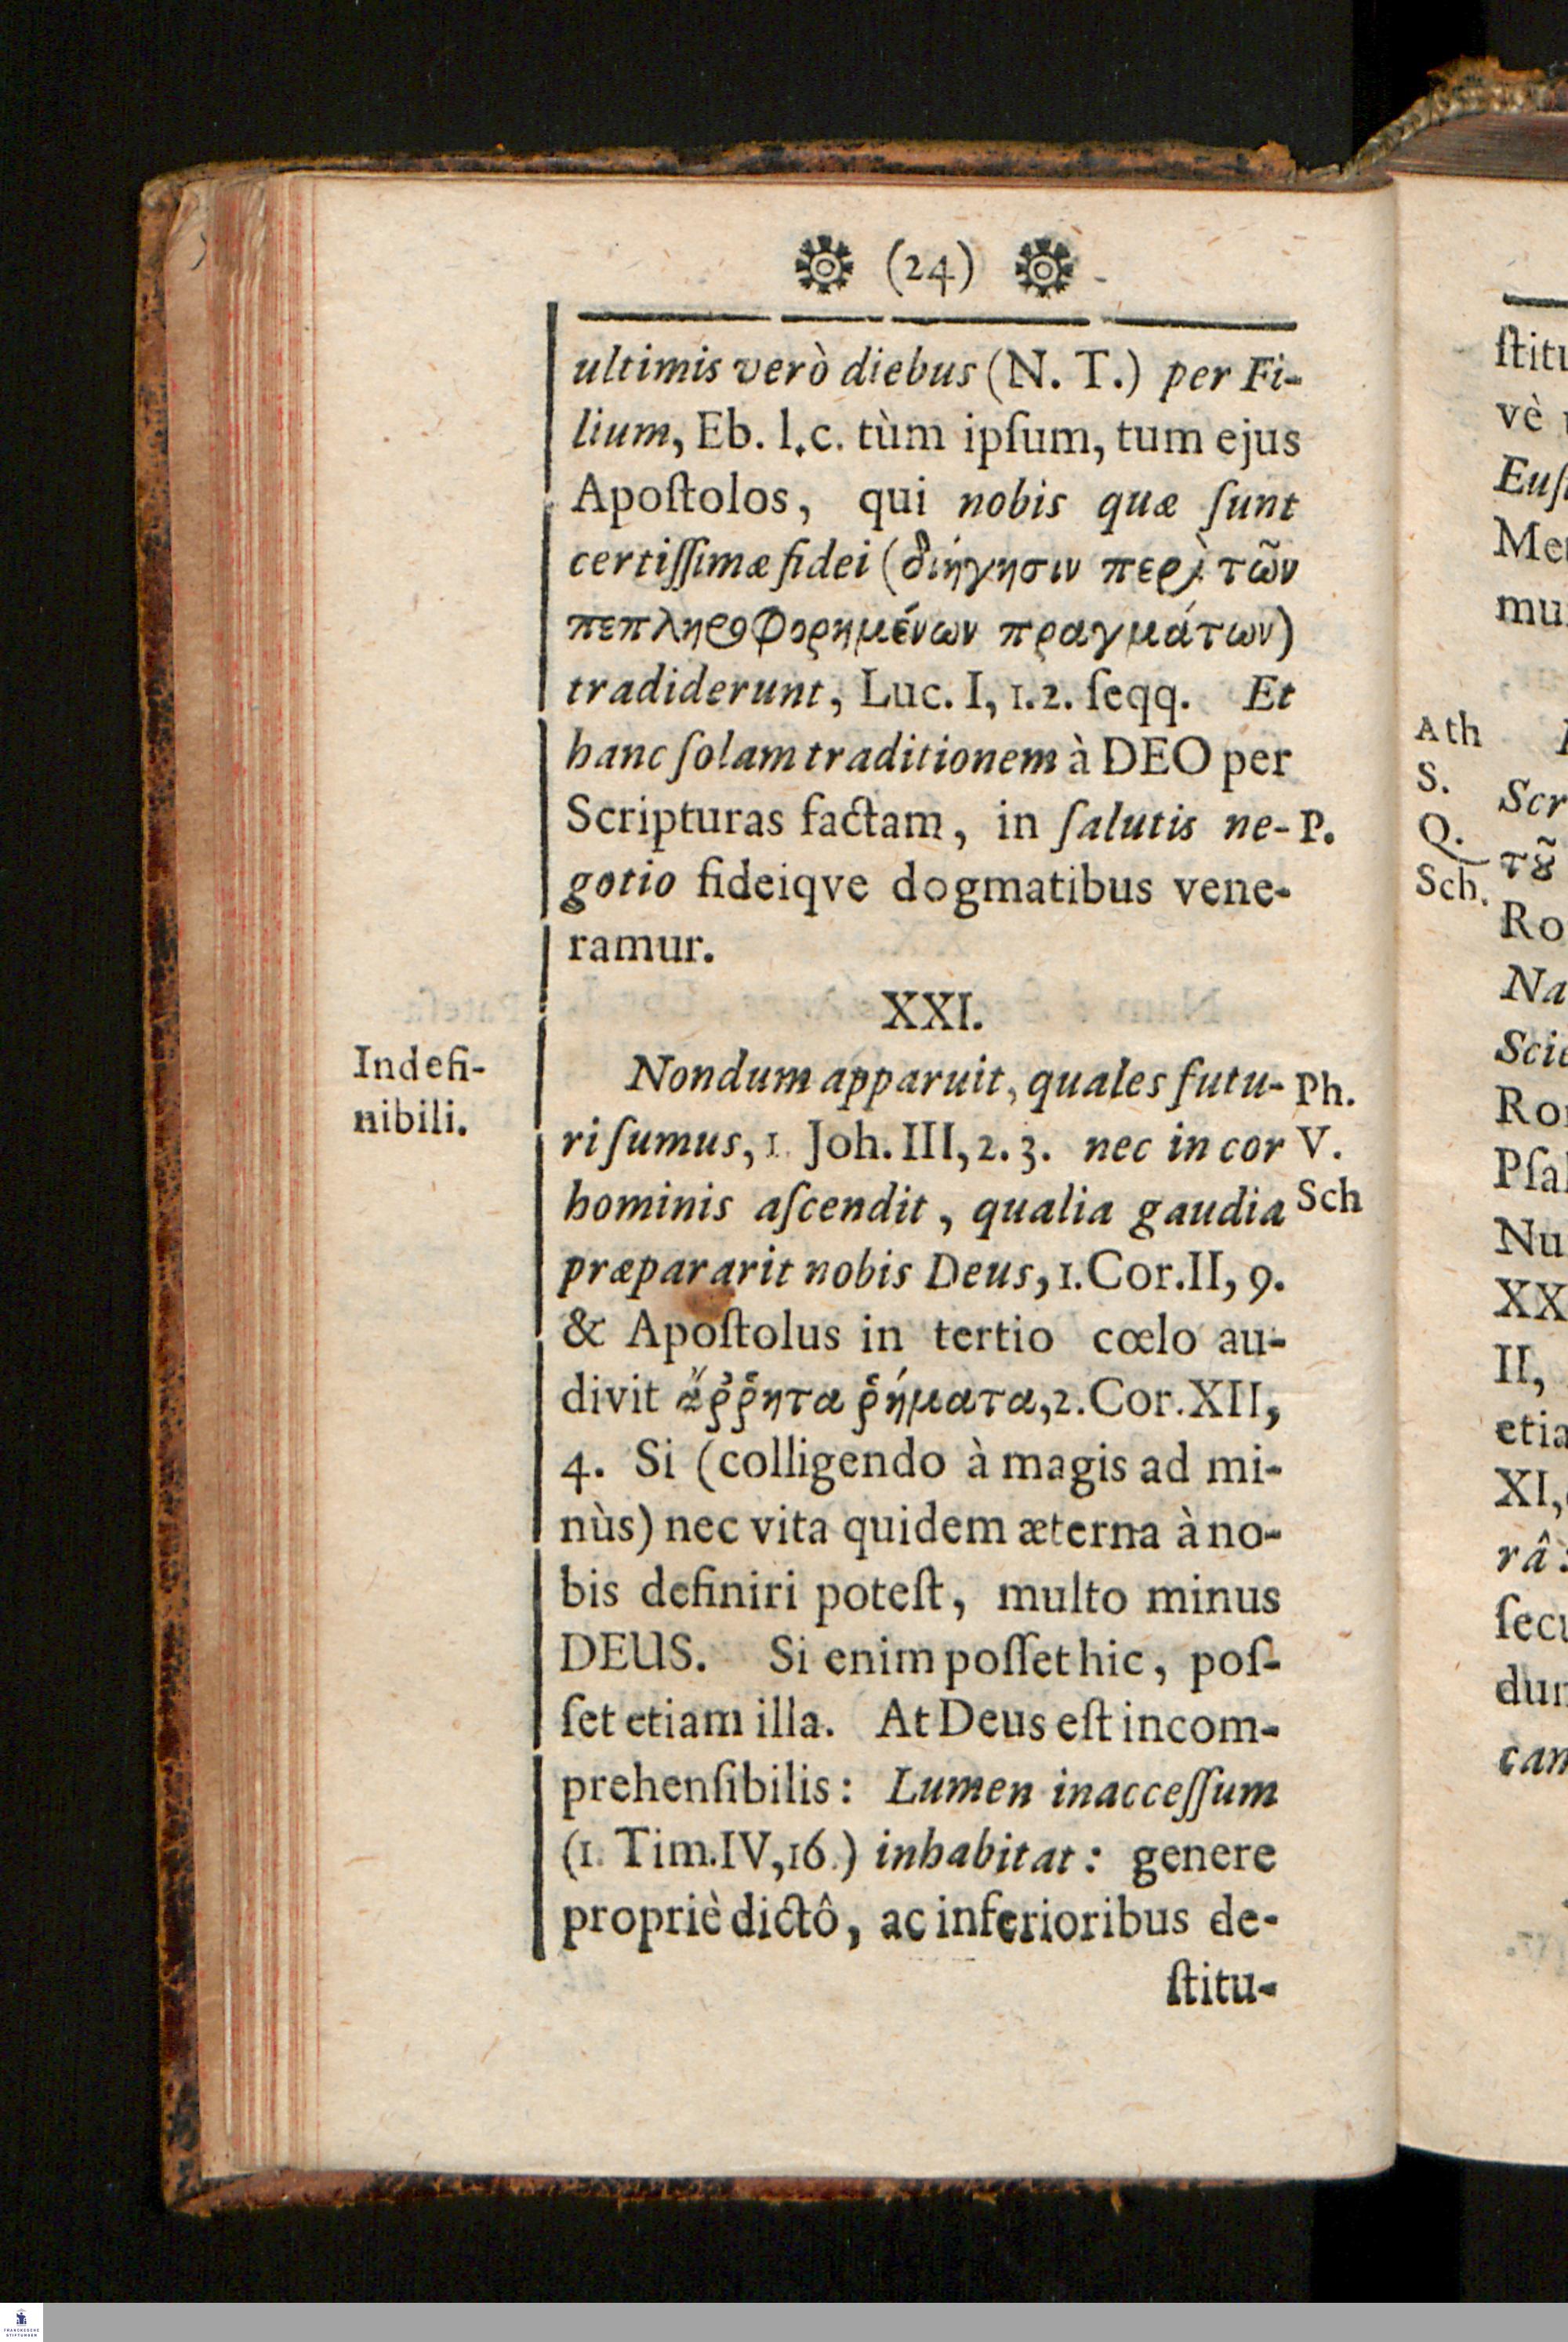 (24)
ultimis verò diebus (N. T.) per Fi-
lium, Eb. l.c. tùm ipſum, tum ejus
Apoſtolos, qui nobis quæ ſunt
certiſſimæ fidei (διήγησιν περὶ τῶν
πεπληροφορημένων πραγμάτων)
tradiderunt, Luc. I, 1. 2. ſeqq. Et
hanc ſolam traditionem à DEO per
Scripturas factam, in ſalutis ne- P.
gotio fideiqve dogmatibus vene-
ramur.
XXI.
Indefi-
nibili.
Nondum apparuit, quales futu- Ph.
ri ſumus, 1. Joh. III, 2. 3. nec in cor V.
hominis aſcendit, qualia gaudia Sch
præpararit nobis Deus, 1. Cor. II, 9.
& Apoſtolus in tertio cœlo au-
divit ἄῤῥητα ῥήματα, 2. Cor. XII,
4. Si (colligendo à magis ad mi-
nùs) nec vita quidem æterna à no-
bis definiri poteſt, multo minus
DEUS. Si enim poſſet hic, poſ-
ſet etiam illa. At Deus eſt incom-
prehenſibilis: Lumen inacceſſum
(1. Tim. IV, 16.) inhabitat: genere
propriè dictô, ac inferioribus de-
ſtitu-
ſtitu
vè
Euſ
Me
mu
Ath
S.
Q.
Sch.
Scr
τȣ͂
Ro
Na
Scie
Ro
Pſal
Nu
XX
II,
etia
XI,
râ
ſecu
dum
can
FRANCKESCHE
STIFTUNGEN